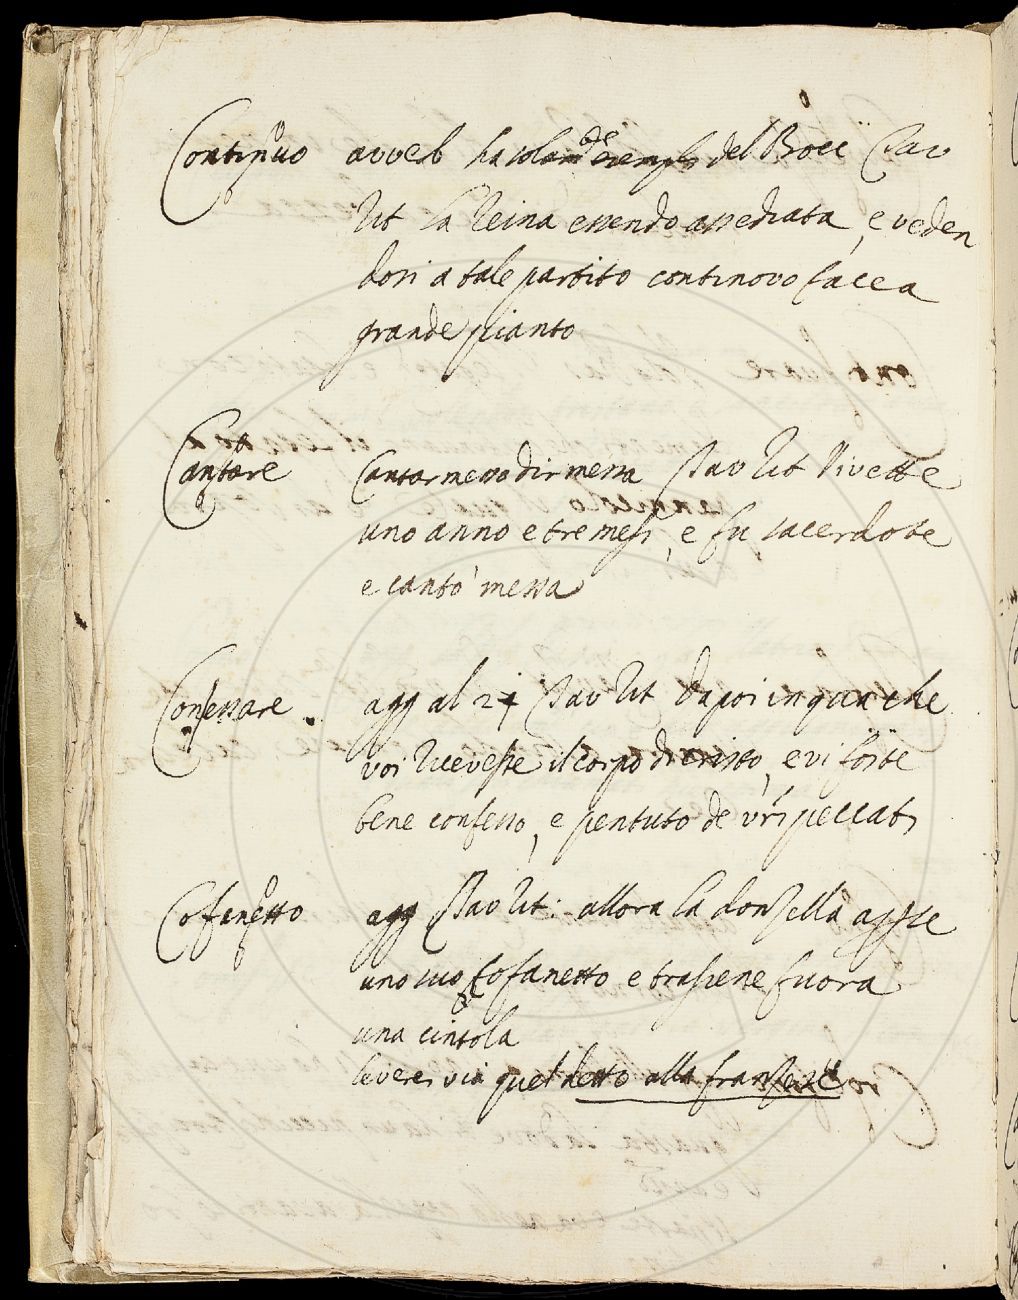 Continuo avverb ha solam de esempli del Bocc Tav
Rit La Reina essendo assediata, e veden
dosi a tale partito continovo facea
grande pianto
Cantare Cantar messa dir messa Tav Rit Vivette
uno anno e tre mesi, e fu sacerdote
e cantò messa
Confessare agg al 2 Tav Rit Dapoi in qua che
voi riceveste il corpo di cristo, e vi foste
bene confesso, e pentuto de vri peccati
Cofanetto agg Tav Rit: allora la donzella aperse
uno suo Cofanetto e trassene fuora
una cintola
leverei via quel detto alla franzese